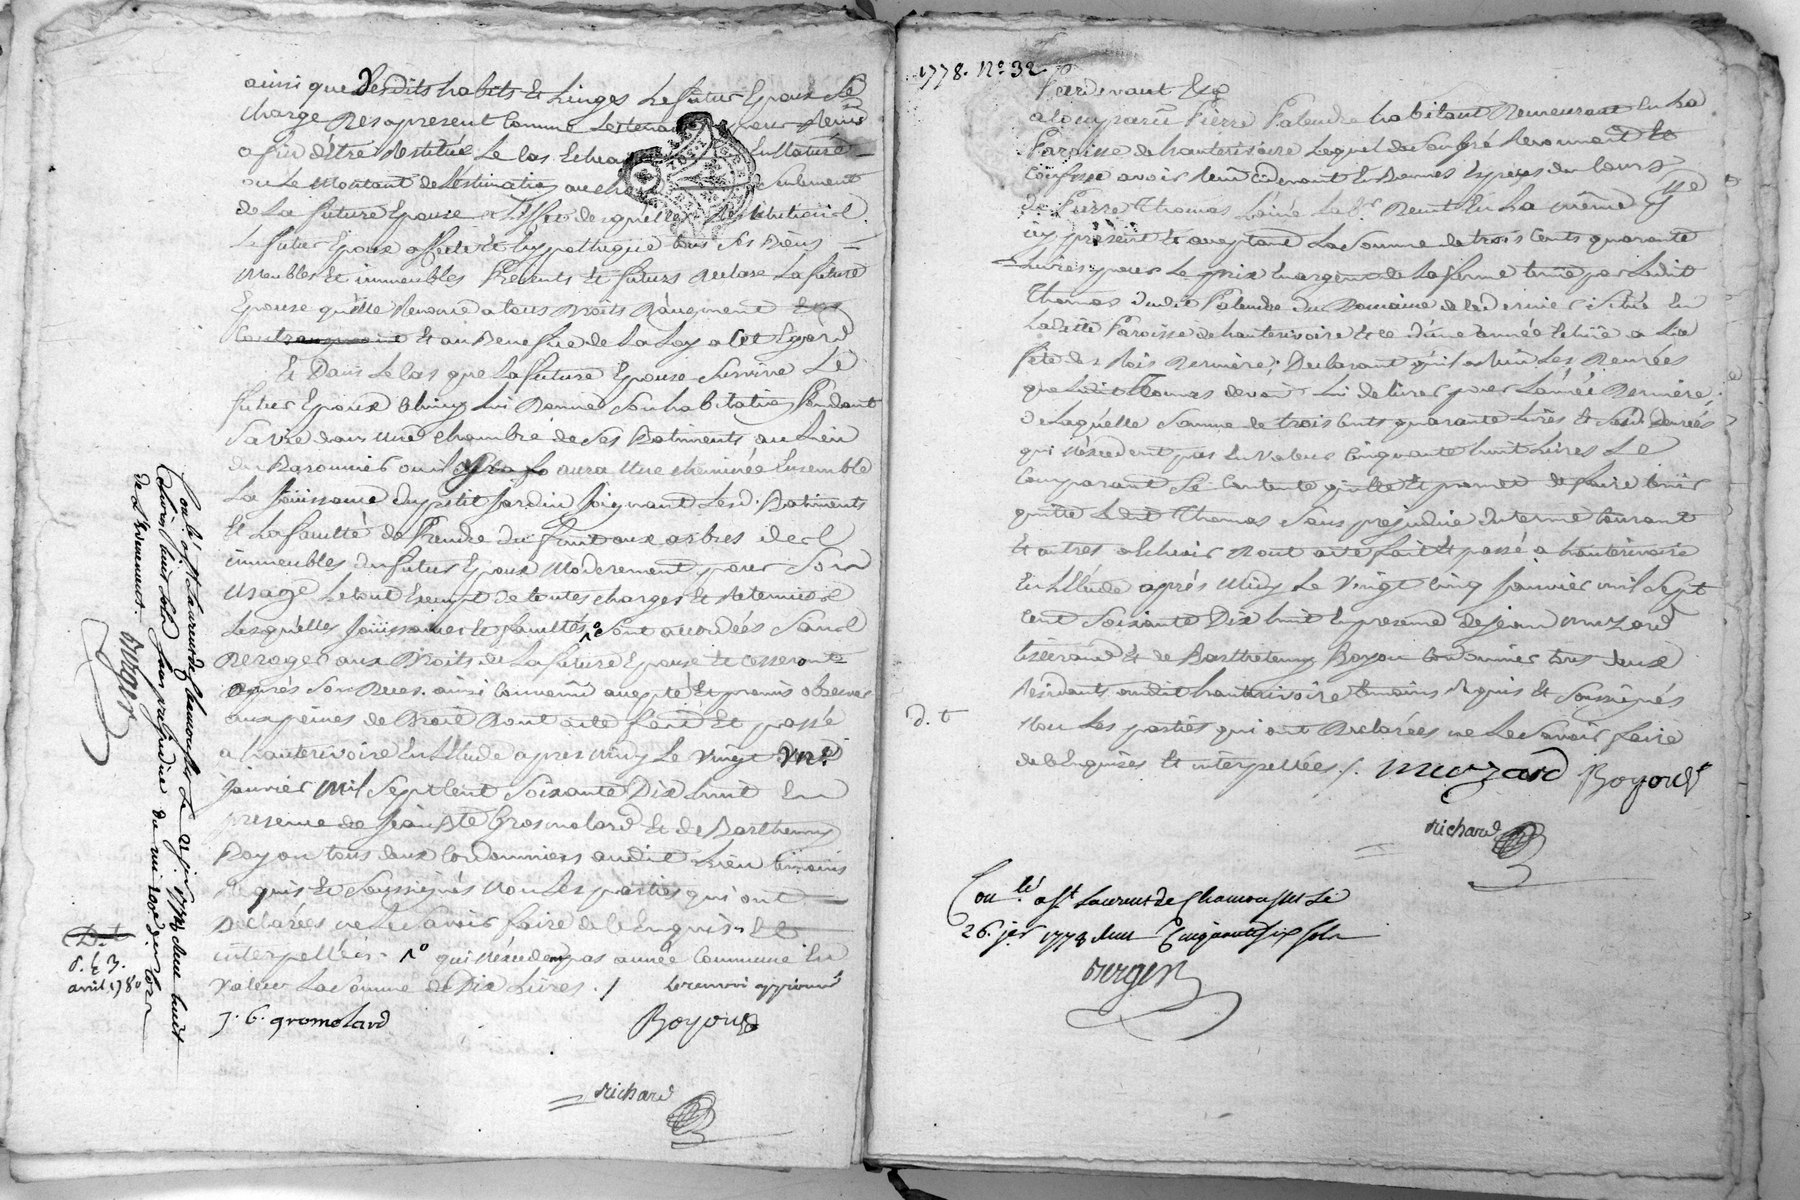 ainsi que desdits habits et Linges Le futur Epoux se
charge des apresent Comme Les tenant pour
afin d'être Restitué Le Cas Echeant Ennature
ou Le Montant de L'estimation au choix seulement
de La future Epouse a L'effet de quelle Restitution
Le futur Epoux affecte Et hypothéque tous ses Biens
Meubles Et immeubles Présents Et futurs declare La future
Epouse qu'elle Renonce a tous Droits D'augment
Et au Benefice de La Loy a Cet Egard
Et Dans Le Cas que La future Epouse Survive Le
futur Epoux Celuicy Lui Donne Son habitation Pendant
Sa vie dans une chambre de Ses Batiments au Lieu
du ou il y aura Une cheminée Ensemble
La Joüissance du petit Jardin Joignant Lesd. Batiments
Et La faculté de Prendre du fruit aux arbres de
immeubles du futur Epoux Moderement pour Son
Usage Le tout Exempt de toutes charges Et
Lesquelles Joüissances Et facultés 1° Sont accordées Sans
Deroger aux Droits de La future Epouse Et cesseront
aprés Son Deces. ainsi Convenu accepté Et promis observer
aux peines de Droit Dont acte fait Et passé
a hauterivoire En L'Etude apres midy Le vingt un
janvier Mil Sept Cent Soixante Dix huit En
presence de Jean Bte Gromolard Et de Barthemy
Boyou tous deux Cordonniers audit Lieu témoins
Requis Et Soussignés Non Les parties qui ont
Déclarées ne Le Savoir faire de Ce Enquises Et
interpellées. 1° qui n'éxcedent pas année Commune En
valeur La Somme de Dix Livres. /. Le renvoi approuvé
J. B. gromolard Boyoud
Richard
Conlé. a St Laurent de Chamousset Le 21 jer. 1778 Reçu huit
Livres huit sols sans prejudice du
de L'Evenement.
Burger
D. t
avril 1780
1778. N° 32
Pardevant Etc
a Comparü Pierre Palandre habitant Demeurant En La
Paroisse de hauterivoire Lequel de Son gré Reconnait Et
Confesse avoir Reçu cidevant En Bonnes Especes de Cours
de Pierre Thomas Lainé Labr. Demt. En La même Psse
icy présent Et aceptant La Somme de trois Cents quarante
Livres pour Le prix En argent de La ferme tenue par Ledit
Thomas dudit Palandre du Domaine de ce dernier Situé En
Ladite Paroisse de hauterivoire Et ce d'une année Echüe a La
fête des Rois Derniere; Declarant qu'il a Reçu Les Denrées
que Ledit Thomas devoit Lui delivrer pour L'année Derniere;
de Laquelle Somme de trois Cents quarante Livres Et Sesd. Denrées
qui n'éxcedent pas En valeur Cinquante huit Livres Le
Comparant Se Contente quitte Et promet de faire tenir
quitte Ledit Thomas Sans prejudice du terme Courant
Et autres a Echeoir Dont acte fait Et passé a hauterivoire
En L'Etude aprés Midy Le Vingt Cinq Janvier mil Sept
Cent Soixante Dix huit En presence de Jean Muzard
tisserand Et de Barthelemy Boyou Cordonnier tous deux
Residants audit hauterivoire temoins Requis Et Soussignés
Non Les parties qui ont Declarées ne Le Savoir faire
de Ce Enquises Et interpellées. /.
d. t
Muzard Boyoud
Richard
Conlé. a St. Laurent de Chamousset Le
26. jer. 1778 Reçu Cinquante six sols
Burger